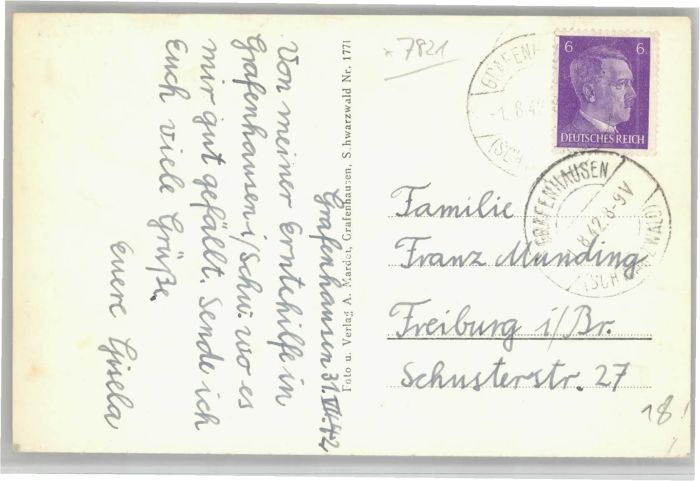 Grafenhausen 31.VII.42
Von meiner Erntehilfe in
Grafenhausen i/Schw. wo es
mir gut gefällt. Sende ich
Euch viele Grüße.
Euere Gisela
Foto u. Verlag A. Marder, Grafenhausen, Schwarzwald Nr. 1771
* 7821
6 6
DEUTSCHES REICH
GRAFENHA
-1.8.42
(SCH
GRAFENHAUSEN
8.42.8-9V
(SCHWARZWALD)
Familie
Franz Munding
Freiburg i/Br.
Schusterstr. 27
18!